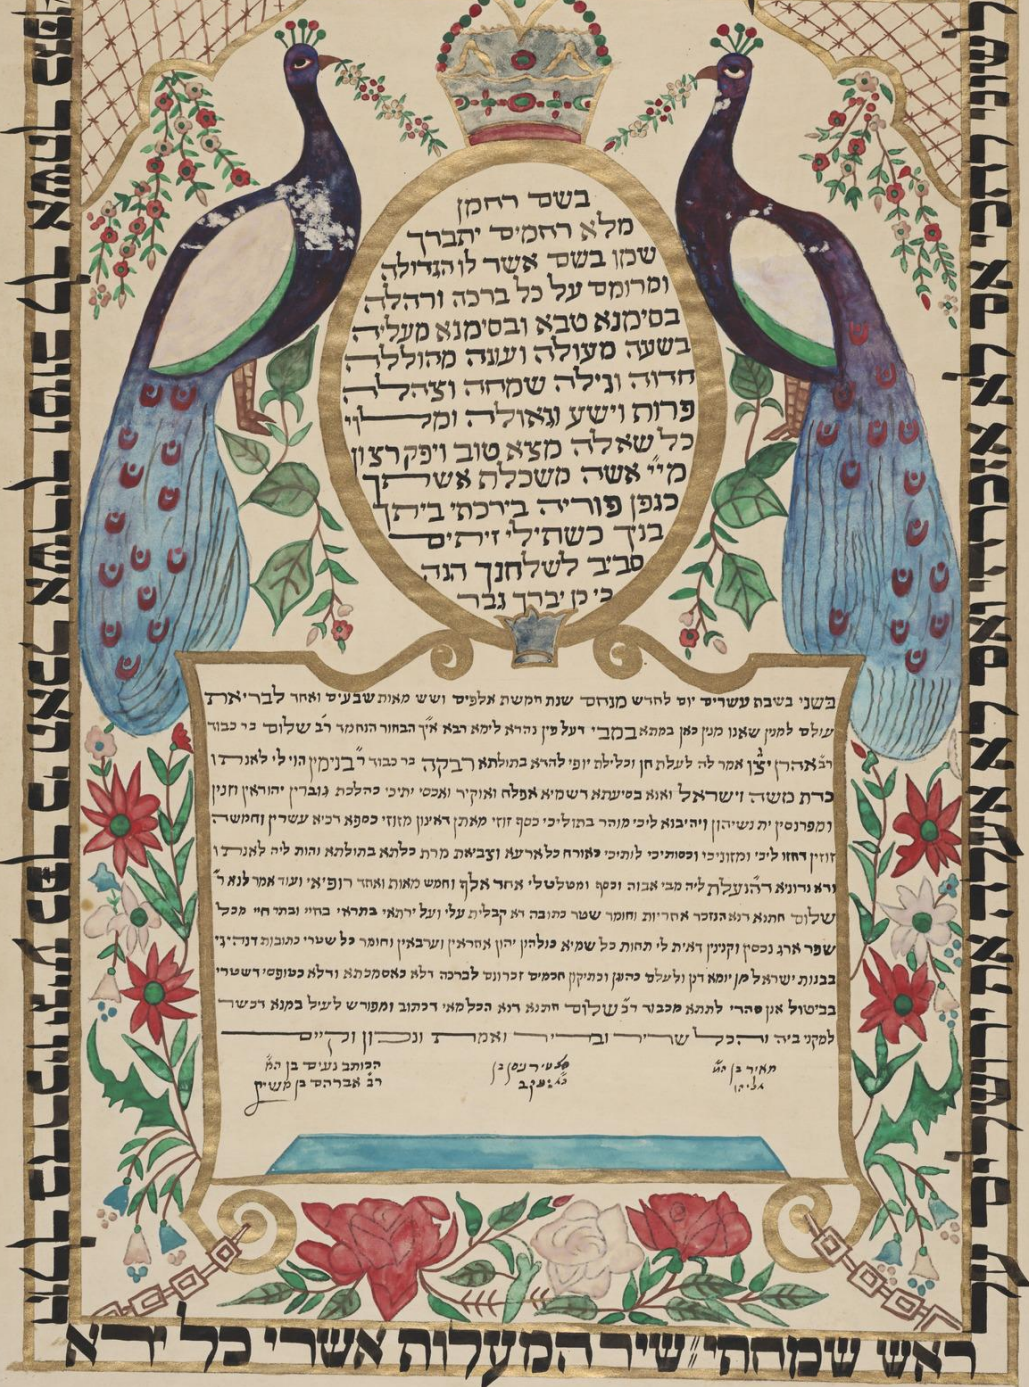 בשם רחמן
מלא רחמים יתברך
שמו בשם אשר לו הגדולה
ומרומם על כל ברכה ותהלה
בסימנא טבא ובסימנא מעליה
בשעה מעולה ועונה מהוללה
חדוה וגילה שמחה וצהלה
פרות וישע וגאולה
כל שאלה מצא טוב ויפק רצון
מיי אשה משכלת אשתך
כגפן פוריה בירכתי ביתך
בניך כשתילי זיתים
סביב לשלחנך הנה
כי כן יברך גבר
בשני בשבת עשרים יום לחדש מנחם שנת חמשת אלפים ושש מאות שבעים ואחד לבריאת
עולם למנין שאנו מנין כאן במתא במבי דעל פין נהרא לימא רבא איך הבחור הנחמד ר שלום בר כבוד
אהרן אמר לה לעלת חן וכלילת יופי להדא בתולתא רבקה בר כבוד ר בנימין הוי לי לאנתו
כדת משה וישראל ואנא בסיעתא דשמיא אפלח ואוקיר ואכסי יתיכי כהלכת גוברין יהודאין דזנין
ומפרנסין ית נשיהון ויהיבנא ליכי מוהר בתוליכי כסף זוזי מאתן דאינון מזוזי כספא דכיא עשרין וחמשה
זוזין דחזו ליכי ומזוניכי וכסותיכי לותיכי כאורח כל ארעא וצביאת מרת כלתא בתולתא והות ליה לאנתו
ודא נדוניא דהנעלת ליה מבי אבוה וכסף ומטלטלי אחד אלף וחמש מאות ואחד רופיאי ועוד אמר לנא ר
שלום חתנא דנא הנזכר אחריות וחומר שטר כתובה דא קבלית עלי ועל ירתאי בתראי בחיי ובתר חיי מכל
שפר ארג נכסין וקנינין דאית לי תחות כל שמיא כולהון יהון אחראין וערבאין וחומר כל שטרי כתובות דנהיגי
בבנות ישראל מן יומא דנן ולעלם כהוגן וכתיקון חכמים זכרונם לברכה דלא כאסמכתא ודלא כטופסי דשטרי
בביטול אנן סהדי לתתא מכבוד רב שלום חתנא דנא הכל מאי דכתוב ומפורש לעיל במנא דכשר
למקני ביה והכל שריר ובריר ואמת ונכון וקיים
מאיר בן
אליהו
נסן בן
יעקב
הכותב נעים בן
אברהם בן
ראש שמחתי שיר המעלות אשרי כל ירא
הולך בדרכיו יגיע כפך כי תאכל אשריך וטוב לך אשתך כגפן
לשוני לחכי אם לא אזכרכי אם לא אעלה את ירושלים על